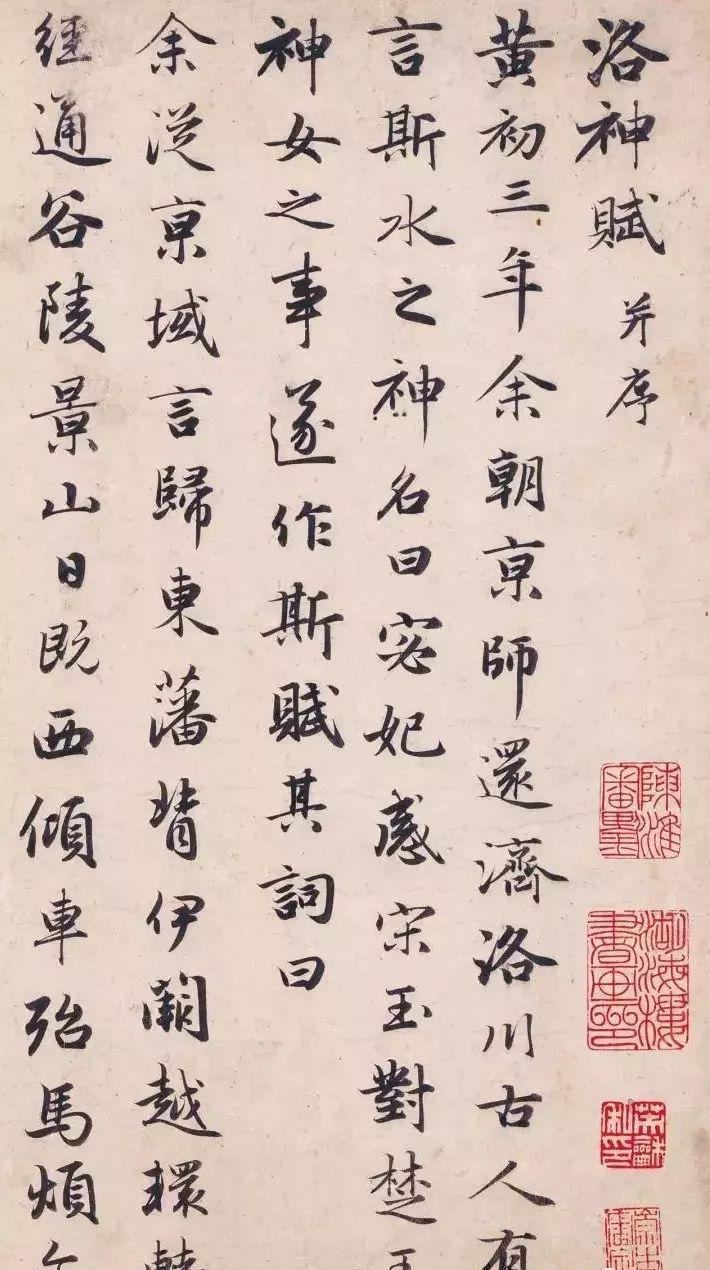 洛神賦 并序
黄初三年余朝亰師還濟洛川古人有
言斯水之神名曰宓妃感宋玉對楚王
神女之事遂作斯賦其詞曰
余從亰域言歸東藩背伊闕越轘轅
經通谷陵景山日既西傾車殆馬煩